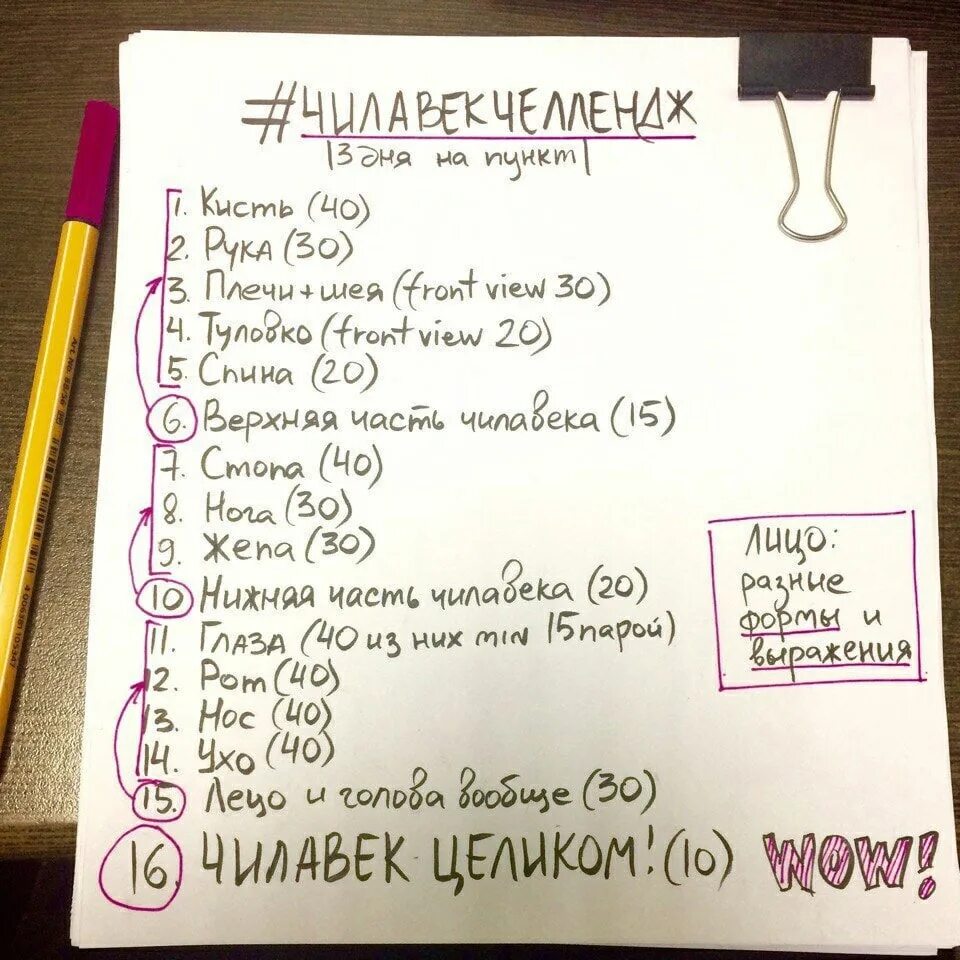 #ЧИЛАВЕКЧЕЛЛЕНДЖ
|3 дня на пункт|
1. Кисть (40)
2. Рука (30)
3. Плечи+шея (front view 30)
4. Туловко (front view 20)
5. Спина (20)
6. Верхняя часть чилавека (15)
7. Стопа (40)
8. Нога (30)
9. Жепа (30)
10 Нижняя часть чилавека (20)
11. Глаза (40 из них min 15 парой)
12. Рот (40)
13. Нос (40)
14. Ухо (40)
15. Лецо и голова вообще (30)
16. ЧИЛАВЕК ЦЕЛИКОМ! (10) WOW!
Лицо:
разные
формы и
выражения